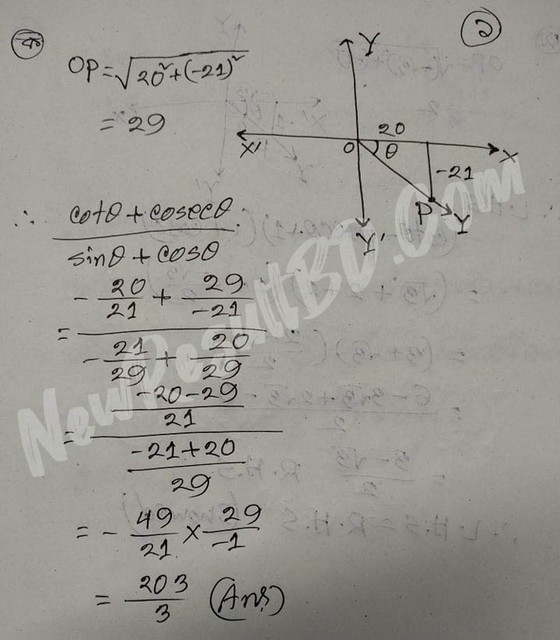 ক
২
OP = √20² + (-21)²
= 29
Y
20
X'
O
θ
X
-21
P
Y
Y'
∴ cotθ + cosecθ
sinθ + cosθ
- 20/21 + 29/-21
= 
- 21/29 + 20/29
-20-29
21
=
-21+20
29
= - 49/21 × 29/-1
= 203/3 (Ans)
NewResultBD.Com